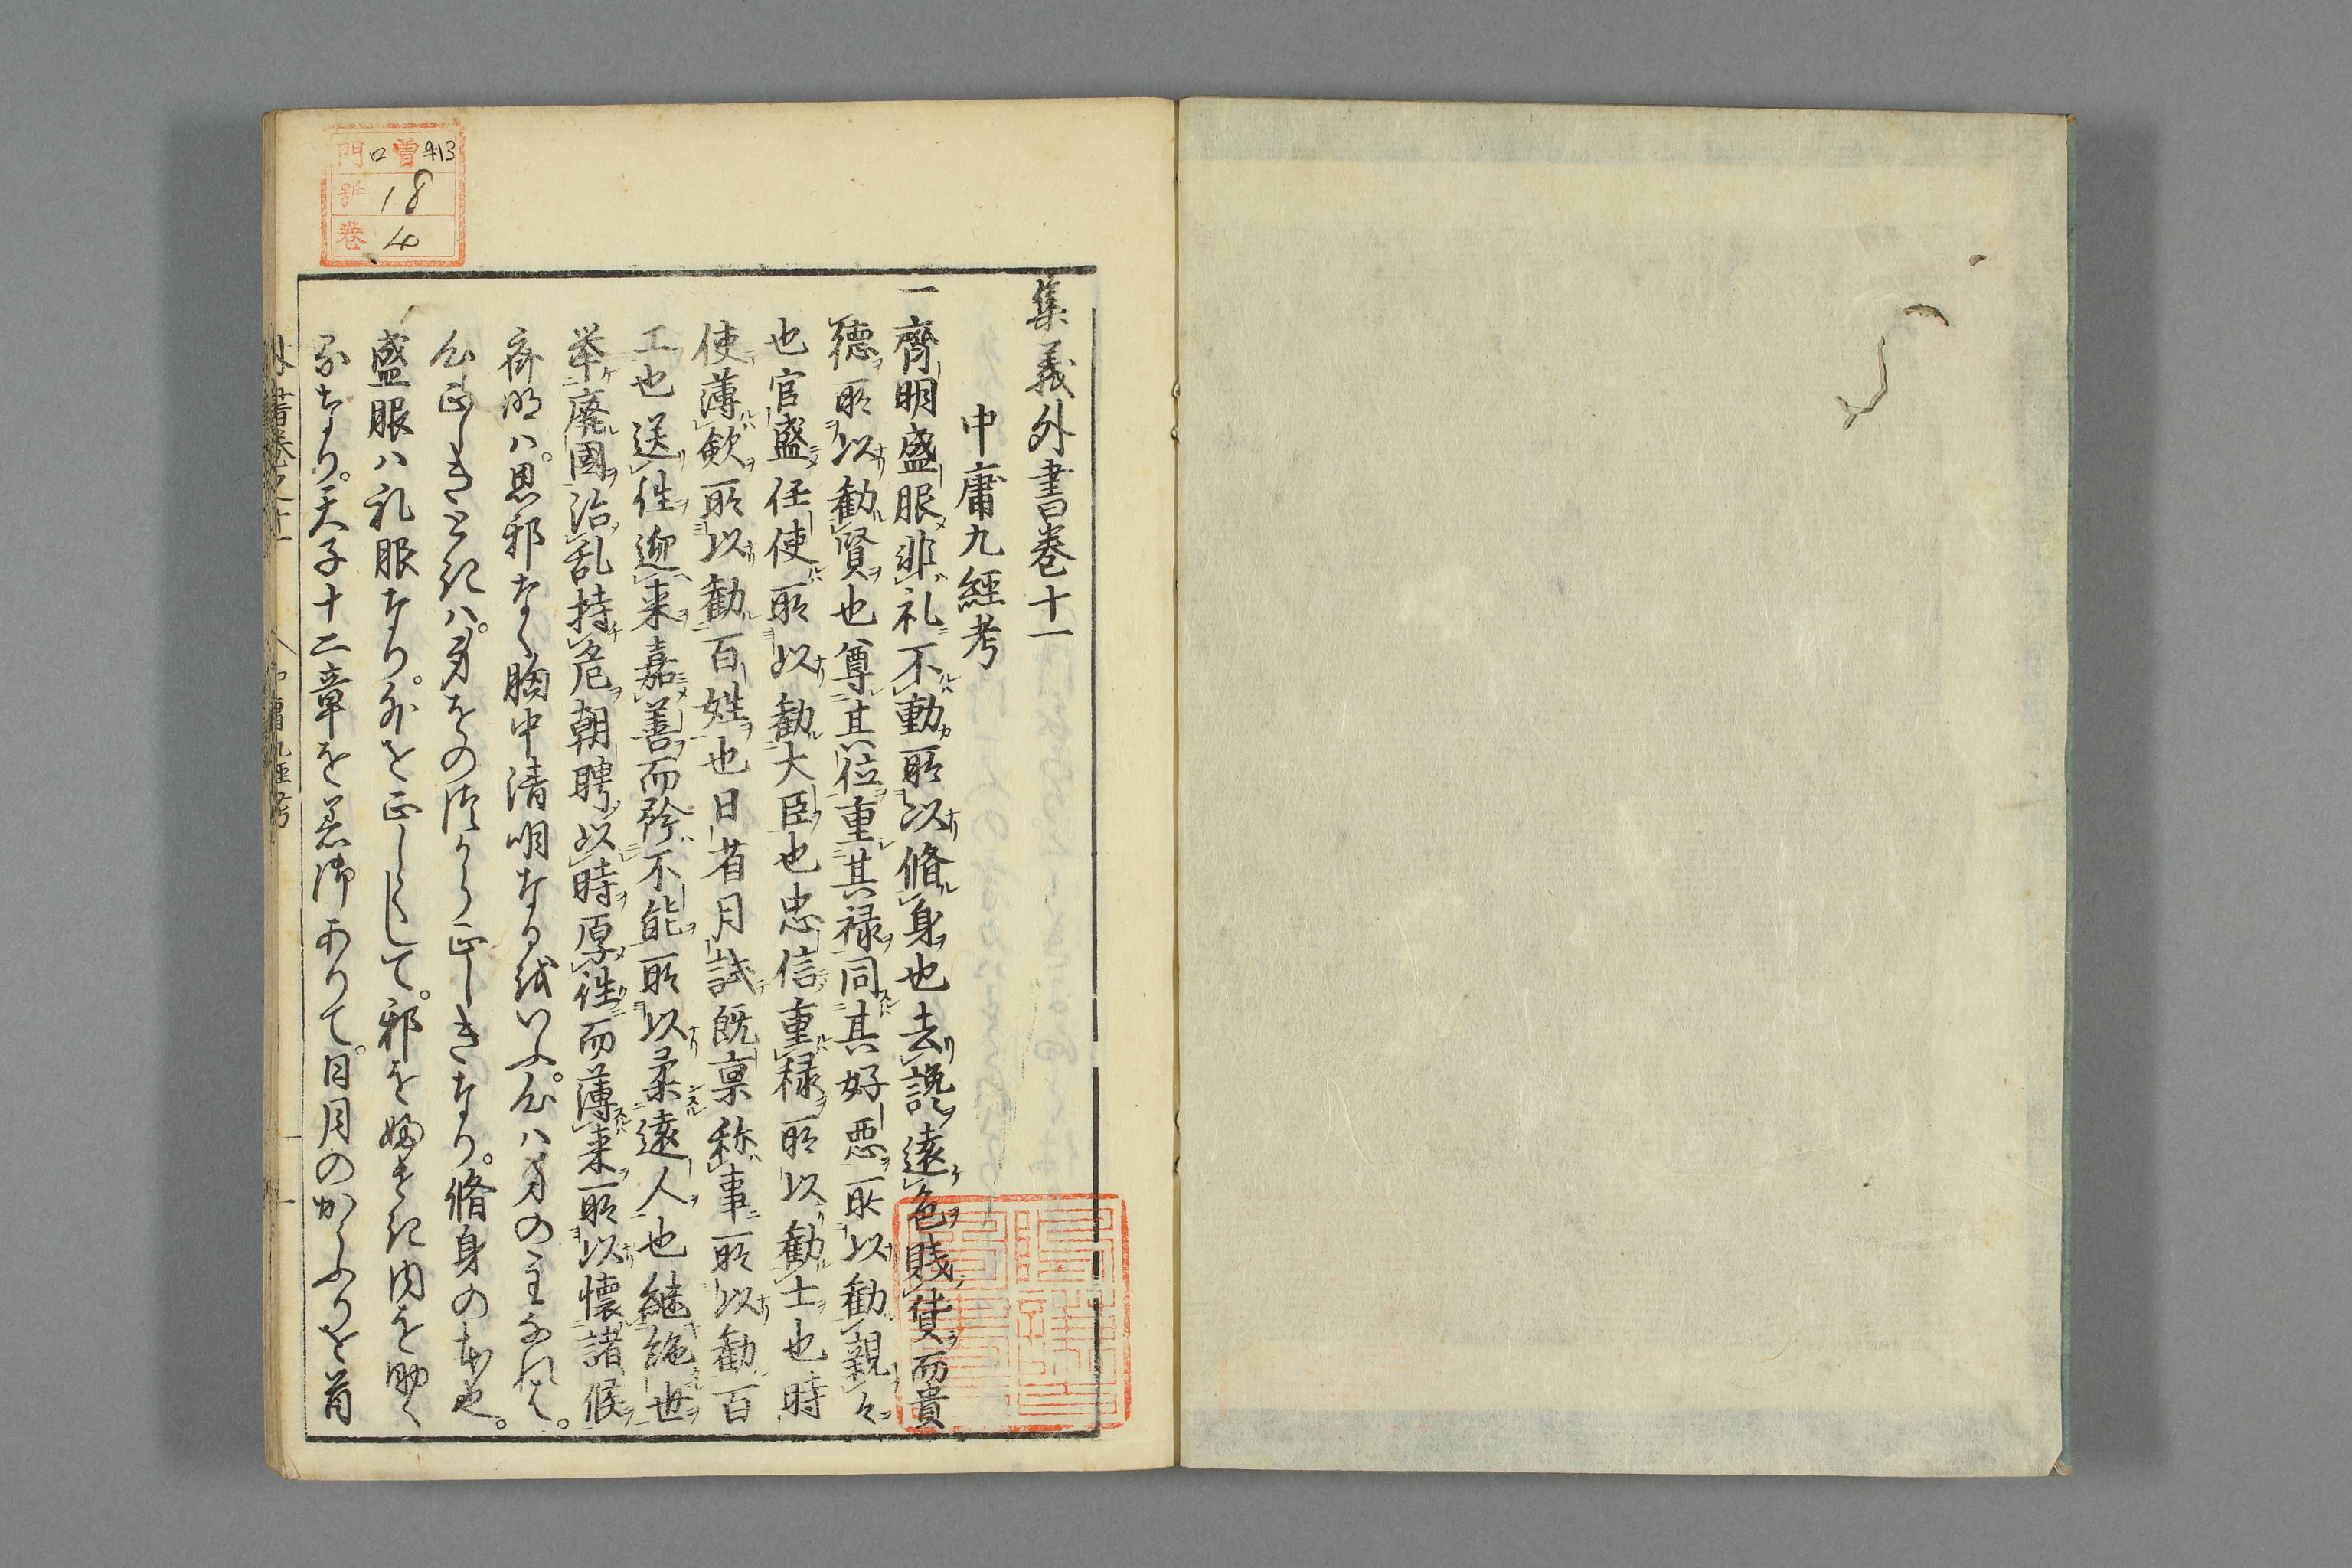 集義外書卷十一
中庸九經考
一齊明盛服非礼不動所以脩身也去讒遠色賤貨而貴
徳所以勧賢也尊其位重其禄同其好悪所以勧親々
也官盛任使所以勧大臣也忠信重禄所以勧士也時
使薄歛所以勧百姓也日省月試既稟称事所以勧百
工也送往迎来嘉善而矜不能所以柔遠人也継絶世
挙廃國治乱持危朝聘以時厚往而薄来所以懐諸侯
斉明ハ思邪なく胸中清明なるをいふ。心ハ身の主なれは。
心正しきときハ。身をのつから正しきなり。脩身の本也。
盛服ハ礼服なり。外を正しくして。邪をふせき内を助く
るなり。天子十二章を着御ありて。日月のかうふりを首
外書卷之十一
中庸九經考
一
門 口 曽 413
号 18
巻 4